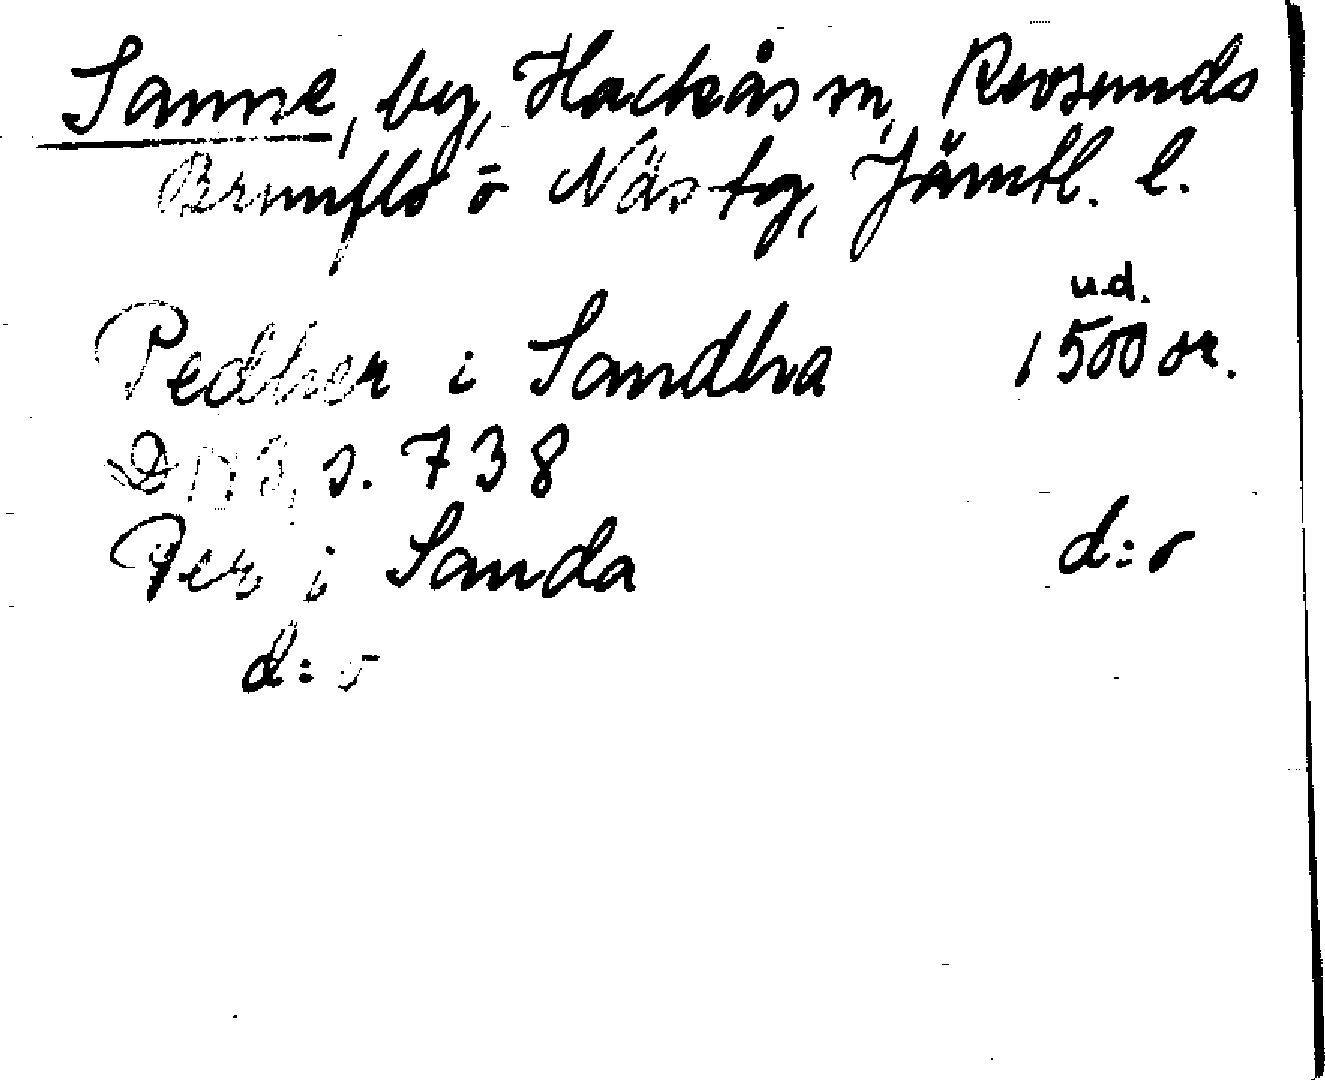 Sanne, by, Hackås sn, Revsunds
Brunflo o Näs tg, Jämtl. l.
u.d.
Pedher i Sandha 1500 or.
D 173, s. 738
Per i Sanda d:o
d:o